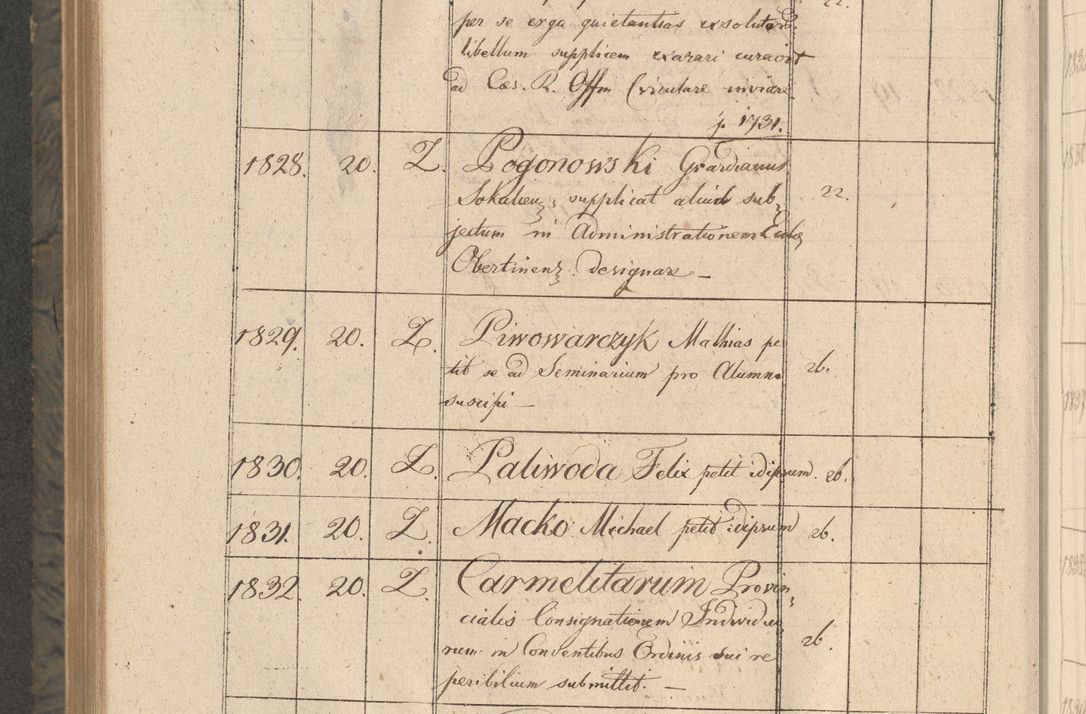 per se erga quietantias exsolutam
libellum supplicem exarari curavit
ad Cæs. R. Offm Circulare inviare
p 1731.
1828. 20. Z. Pogonowski Gvardianus
Sokalien, supplicat aliud sub, 22.
jectum in Administrationem Eccl
Obertinen designare —
1829. 20. Z. Piwowarczyk Mathias pe
tit se ad Seminarium pro Alumno 26.
suscipi —
1830. 20. Z. Paliwoda Felix petit idipsum. 26.
1831. 20. Z. Macko Michael petit idipsum 26.
1832. 20. Z. Carmelitarum Provin,
cialis Consignationem Individuo
rum in Conventibus Ordinis sui re 26.
peribilium submittit. —